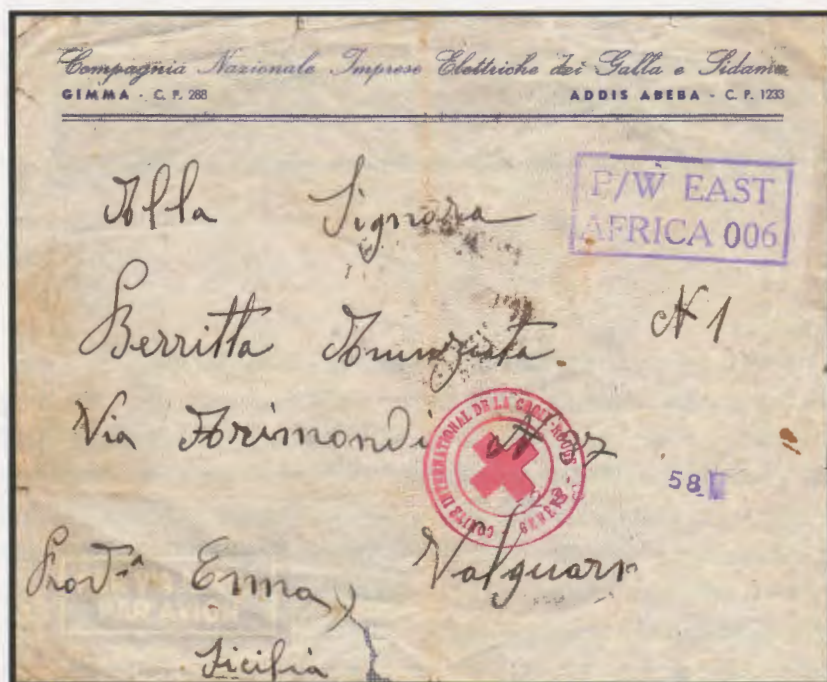 Compagnia Nazionale Imprese Elettriche dei Galla e Sidama
GIMMA - C. P. 288 ADDIS ABEBA - C. P. 1233
P/W EAST
AFRICA 006
Alla Signora
Berritta Annunziata N 1
Via Arimondi N 37
COMITÉ INTERNATIONAL DE LA CROIX-ROUGE - GENÈVE -
58
Provᵃ Enna Valguarn
PAR AVION
Sicilia